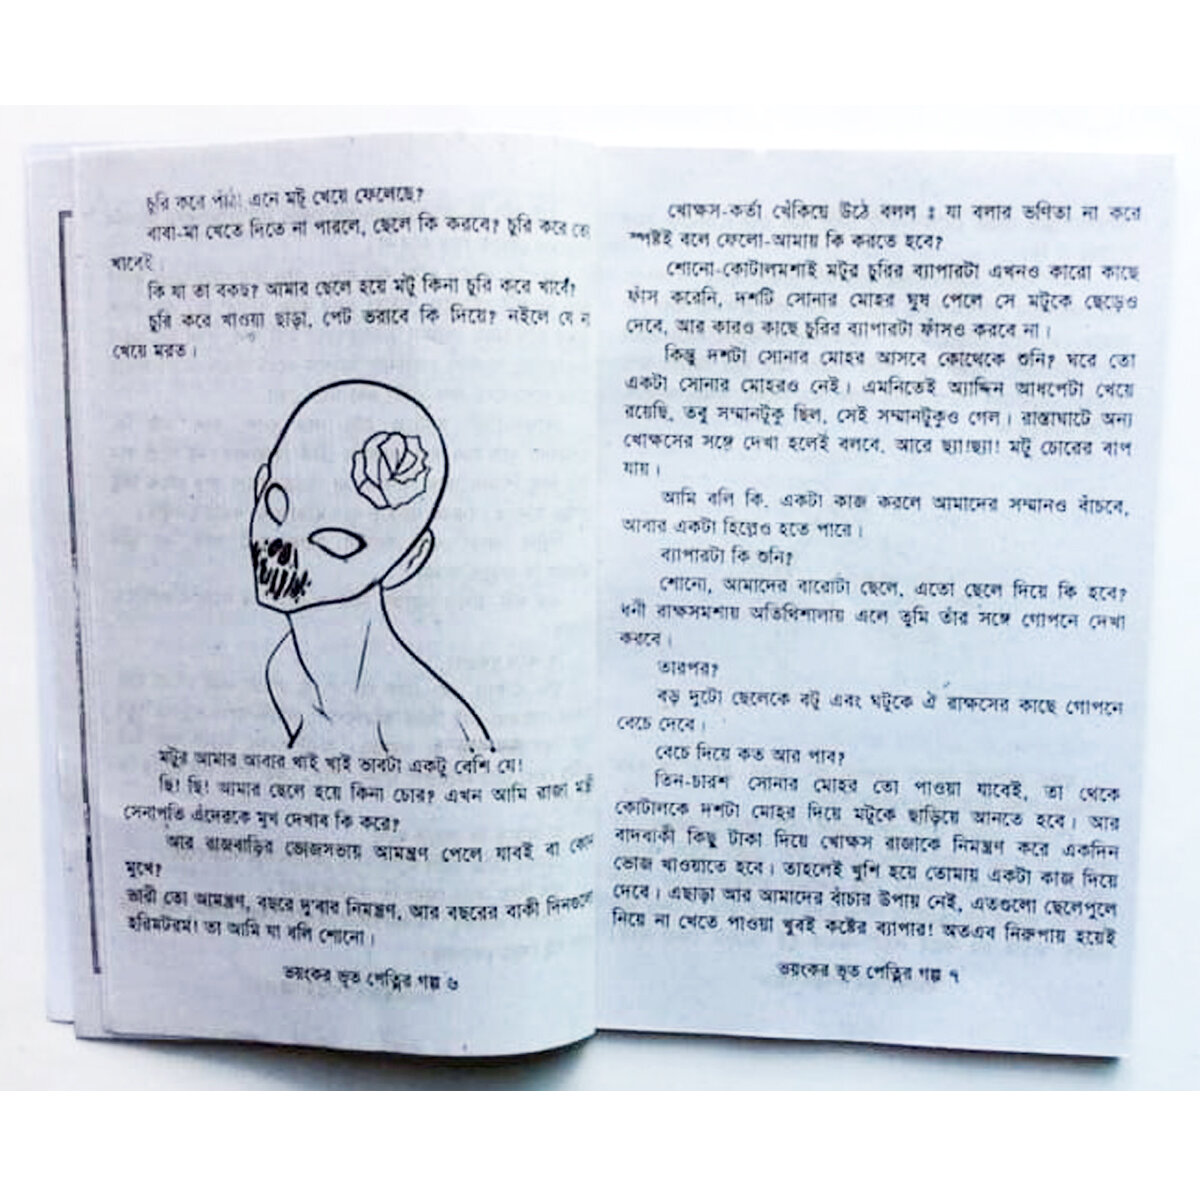 চুরি করে পাঁঠা এনে মটু খেয়ে ফেলেছে?
বাবা-মা খেতে দিতে না পারলে, ছেলে কি করবে? চুরি করে তো
খাবেই।
কি যা তা বকছ? আমার ছেলে হয়ে মটু কিনা চুরি করে খাবে?
চুরি করে খাওয়া ছাড়া, পেট ভরাবে কি দিয়ে? নইলে যে না
খেয়ে মরত।
মটুর আমার আবার খাই খাই ভাবটা একটু বেশি যে!
ছি! ছি! আমার ছেলে হয়ে কিনা চোর? এখন আমি রাজা মন্ত্রী
সেনাপতি এঁদেরকে মুখ দেখাব কি করে?
আর রাজবাড়ির ভোজসভায় আমন্ত্রণ পেলে যাবই বা কোন
মুখে?
ভারী তো আমন্ত্রণ, বছরে দু'বার নিমন্ত্রণ, আর বছরের বাকী দিনগুলো
হরিমটরম! তা আমি যা বলি শোনো।
ভয়ংকর ভূত পেত্নির গল্প ৬
খোক্ষস-কর্তা খেঁকিয়ে উঠে বলল ঃ যা বলার ভণিতা না করে
স্পষ্টই বলে ফেলো-আমায় কি করতে হবে?
শোনো-কোটালমশাই মটুর চুরির ব্যাপারটা এখনও কারো কাছে
ফাঁস করেনি, দশটি সোনার মোহর ঘুষ পেলে সে মটুকে ছেড়েও
দেবে, আর কারও কাছে চুরির ব্যাপারটা ফাঁসও করবে না।
কিন্তু দশটা সোনার মোহর আসবে কোথেকে শুনি? ঘরে তো
একটা সোনার মোহরও নেই। এমনিতেই অ্যাদ্দিন আধপেটা খেয়ে
রয়েছি, তবু সম্মানটুকু ছিল, সেই সম্মানটুকুও গেল। রাস্তাঘাটে অন্য
খোক্ষসের সঙ্গে দেখা হলেই বলবে, আরে ছ্যা!ছ্যা! মটু চোরের বাপ
যায়।
আমি বলি কি, একটা কাজ করলে আমাদের সম্মানও বাঁচবে,
আবার একটা হিল্লেও হতে পারে।
ব্যাপারটা কি শুনি?
শোনো, আমাদের বারোটা ছেলে, এতো ছেলে দিয়ে কি হবে?
ধনী রাক্ষসমশায় অতিথিশালায় এলে তুমি তাঁর সঙ্গে গোপনে দেখা
করবে।
তারপর?
বড় দুটো ছেলেকে বটু এবং ঘটুকে ঐ রাক্ষসের কাছে গোপনে
বেচে দেবে।
বেচে দিয়ে কত আর পাব?
তিন-চারশ সোনার মোহর তো পাওয়া যাবেই, তা থেকে
কোটালকে দশটা মোহর দিয়ে মটুকে ছাড়িয়ে আনতে হবে। আর
বাদবাকী কিছু টাকা দিয়ে খোক্ষস রাজাকে নিমন্ত্রণ করে একদিন
ভোজ খাওয়াতে হবে। তাহলেই খুশি হয়ে তোমায় একটা কাজ দিয়ে
দেবে। এছাড়া আর আমাদের বাঁচার উপায় নেই, এতগুলো ছেলেপুলে
নিয়ে না খেতে পাওয়া খুবই কষ্টের ব্যাপার! অতএব নিরুপায় হয়েই
ভয়ংকর ভূত পেত্নির গল্প ৭